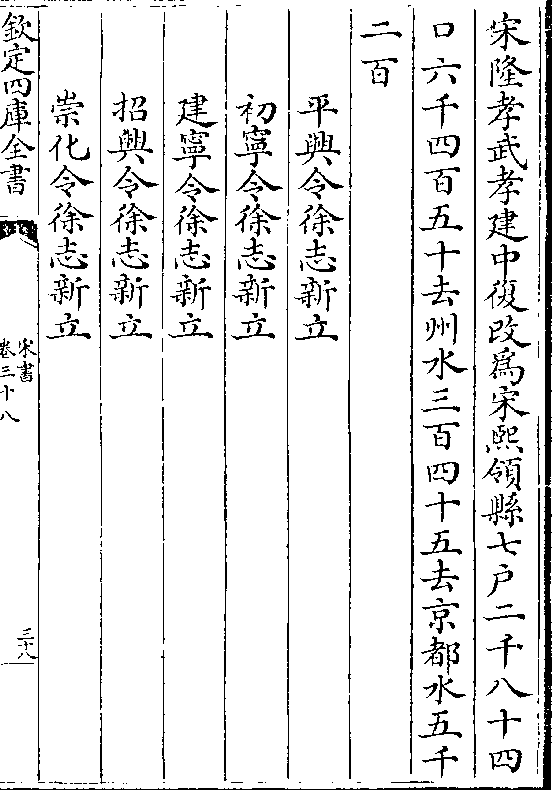 宋隆孝武孝建中復改爲宋熙領縣七户二千八十四
口六千四百五十去州水三百四十五去京都水五千
二百
平興令徐志新立
初寧令徐志新立
建寧令徐志新立
招興令徐志新立
崇化令徐志新立
欽定四庫全書
宋書
卷三十八
三十八